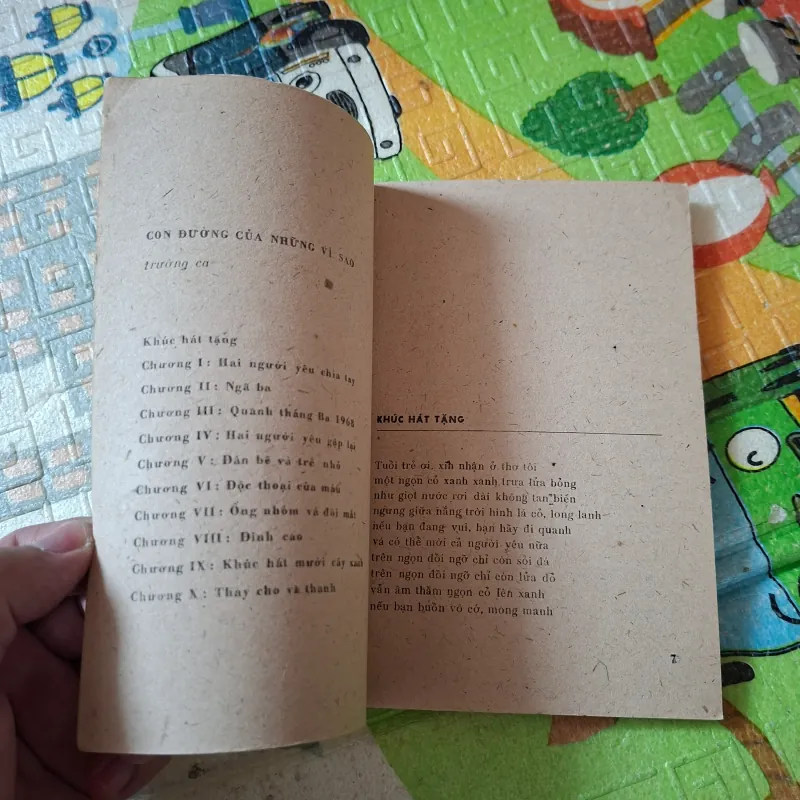 CON ĐƯỜNG CỦA NHỮNG VÌ SAO
trường ca
Khúc hát tặng
Chương I : Hai người yêu chia tay
Chương II : Ngã ba
Chương III : Quanh tháng Ba 1968
Chương IV : Hai người yêu gặp lại
Chương V : Dân bẽ và trẻ nhỏ
Chương VI : Độc thoại của máu
Chương VII : Ống nhòm và đôi mắt
Chương VIII : Đỉnh cao
Chương IX : Khúc hát mười cây xanh
Chương X : Thay cho vĩ thanh
KHÚC HÁT TẶNG
Tuổi trẻ ơi, xin nhận ở thơ tôi
một ngọn cỏ xanh xanh trưa lửa bỏng
như giọt nước rơi dài không tan biến
ngưng giữa nắng trời hình lá cỏ, long lanh
nếu bạn đang vui, bạn hãy đi quanh
và có thể mời cả người yêu nữa
trên ngọn đồi ngỡ chỉ còn sỏi đá
trên ngọn đồi ngỡ chỉ còn lửa đỏ
vẫn âm thầm ngọn cỏ lên xanh
nếu bạn buồn vô cớ, mong manh
7